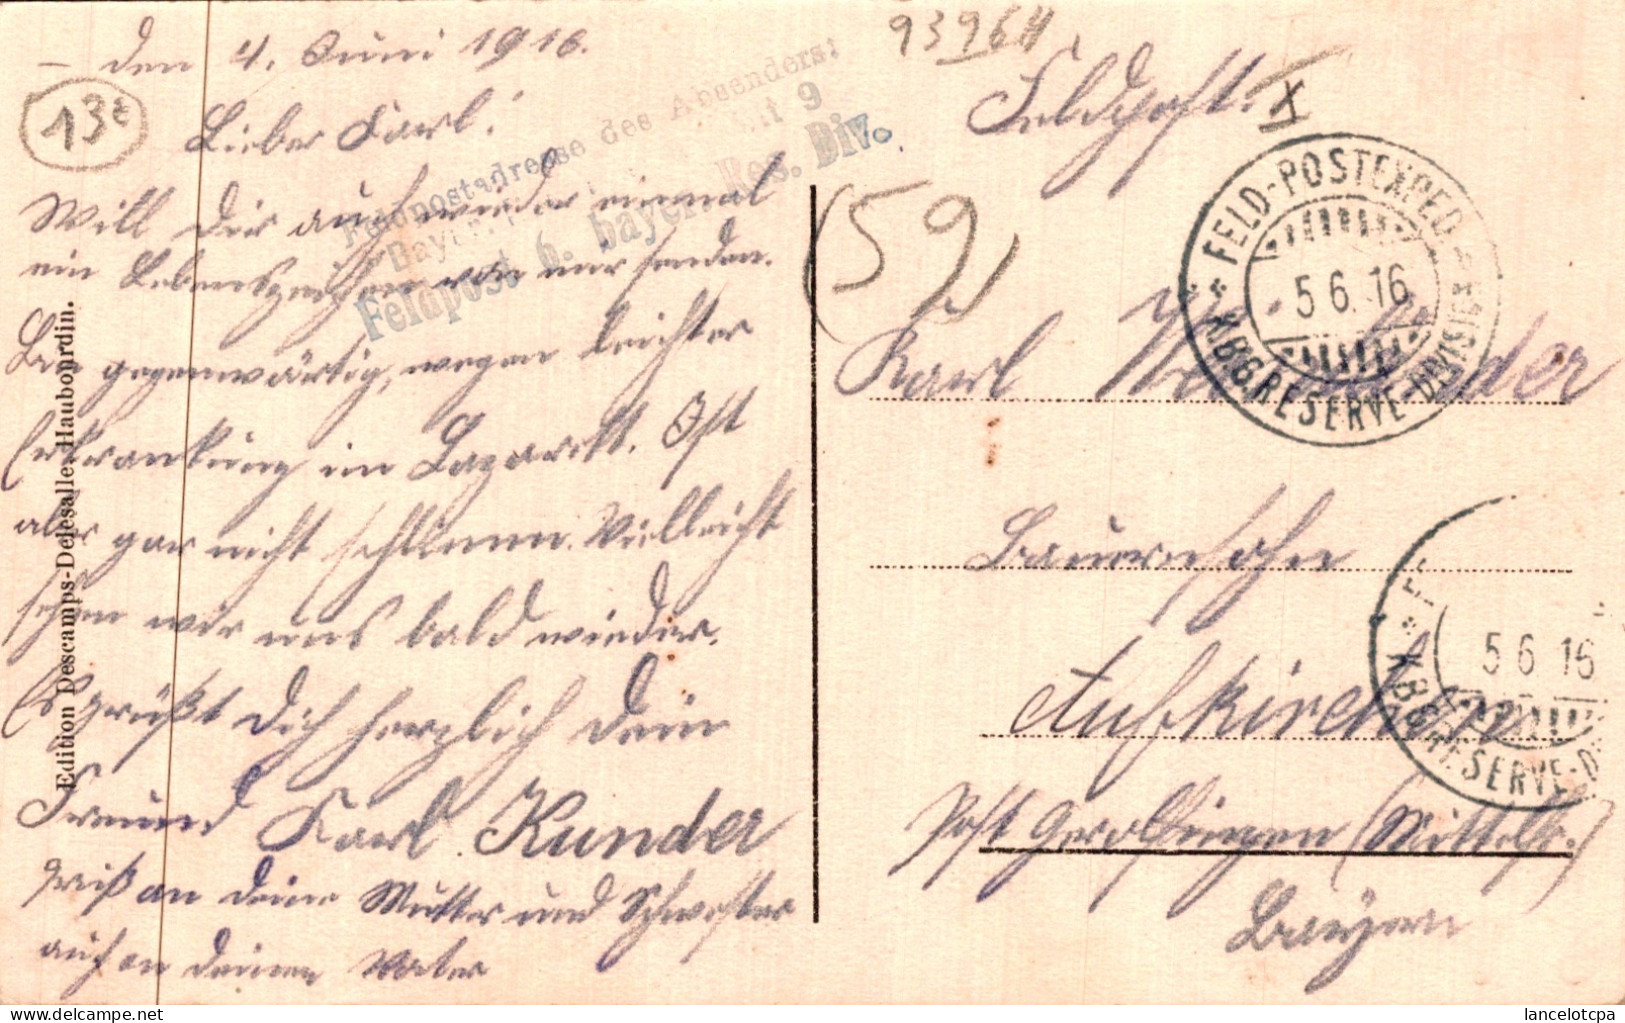 93964
den 4. Juni 1916.
13€
Lieber Karl!
Will Dir auch wieder einmal
ein Lebenszeichen von mir senden.
Bin gegenwärtig, wegen leichter
Erkrankung im Lazarett. Ist
aber gar nicht schlimm. Vielleicht
sehen wir uns bald wieder.
Es grüßt Dich herzlich Dein
Freund Karl Kunder
Gruß an Deine Mutter und Schwester
auch an Deinen Vater
Feldpostadresse des Absenders:
9
Feldpost 6. bayer. Res. Div.
Edition Descamps-Delesalle Haubourdin.
Feldpost.
(59)
FELD-POSTEXPED.
5 6. 16
K.B.6.RESERVE-DIVISION
Karl
Bauernsohn
Aufkirchen
Post Gerolfingen (Mittelfr.)
Bayern
5 6 16
K.B.6.RESERVE-D
lancelotcpa